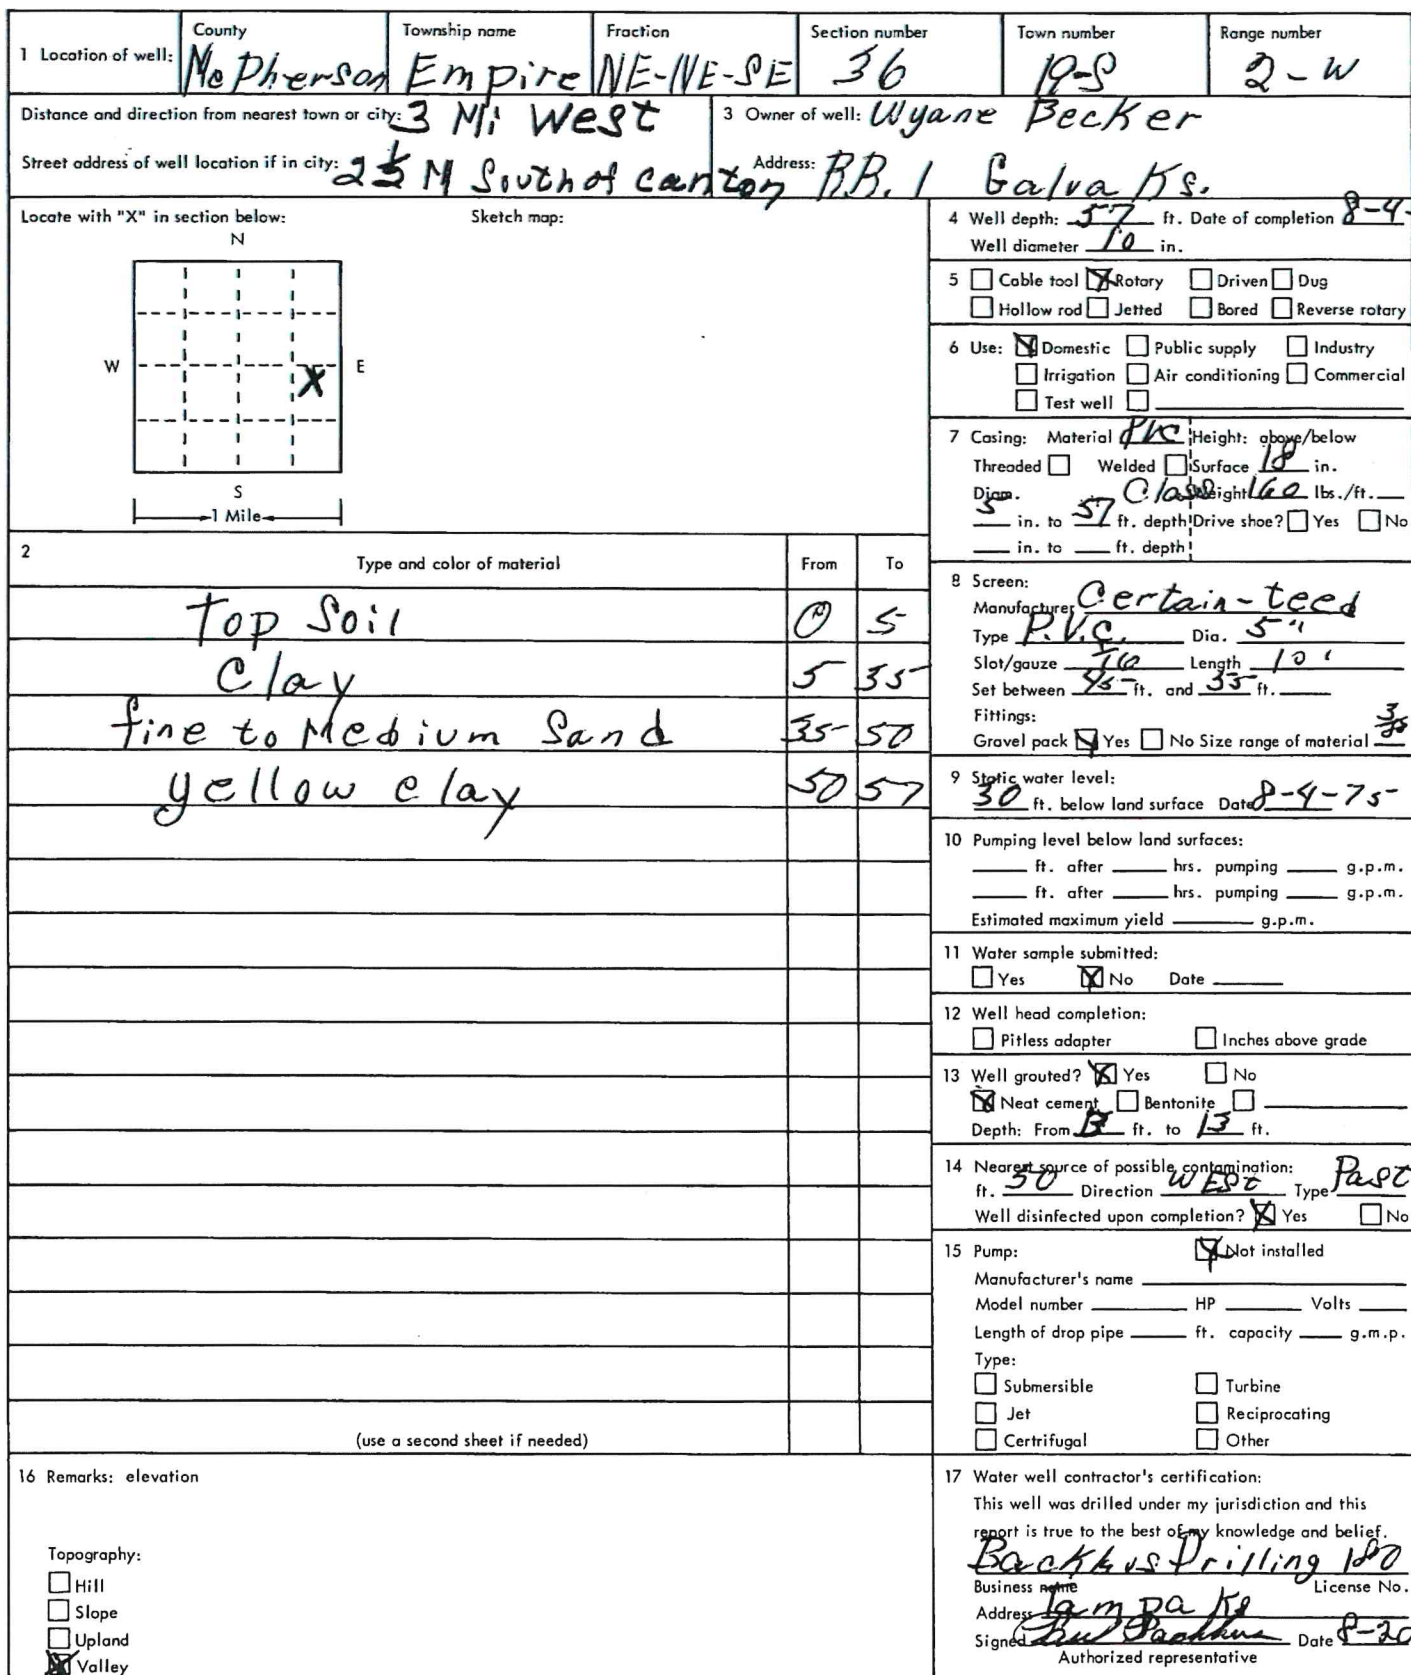 1 Location of well: County McPherson Township name Empire Fraction NE-NE-SE Section number 36 Town number 19-S Range number 2-W
Distance and direction from nearest town or city: 3 Mi West
Street address of well location if in city: 2 1/2 M South of canton
3 Owner of well: Wyane Becker
Address: RR. 1 Galva Ks.
Locate with "X" in section below: Sketch map:
N
W X E
S
1 Mile
2 Type and color of material From To
Top Soil 0 5
Clay 5 35
fine to Medium Sand 35 50
yellow clay 50 57
(use a second sheet if needed)
4 Well depth: 57 ft. Date of completion 8-4-
Well diameter 10 in.
5 Cable tool X Rotary Driven Dug
Hollow rod Jetted Bored Reverse rotary
6 Use: X Domestic Public supply Industry
Irrigation Air conditioning Commercial
Test well
7 Casing: Material PVC Height: above/below
Threaded Welded Surface 18 in.
Diam. Class Weight 160 lbs./ft.
5 in. to 57 ft. depth Drive shoe? Yes No
in. to ft. depth
8 Screen:
Manufacturer Certain-teed
Type P.V.C. Dia. 5"
Slot/gauze Length 10'
Set between 45 ft. and 35 ft.
Fittings:
Gravel pack X Yes No Size range of material
9 Static water level:
30 ft. below land surface Date 8-4-75
10 Pumping level below land surfaces:
ft. after hrs. pumping g.p.m.
ft. after hrs. pumping g.p.m.
Estimated maximum yield g.p.m.
11 Water sample submitted:
Yes X No Date
12 Well head completion:
Pitless adapter Inches above grade
13 Well grouted? X Yes No
X Neat cement Bentonite
Depth: From ft. to 13 ft.
14 Nearest source of possible contamination:
ft. 50 Direction WEST Type Past
Well disinfected upon completion? X Yes No
15 Pump: X Not installed
Manufacturer's name
Model number HP Volts
Length of drop pipe ft. capacity g.m.p.
Type:
Submersible Turbine
Jet Reciprocating
Certrifugal Other
16 Remarks: elevation
Topography:
Hill
Slope
Upland
X Valley
17 Water well contractor's certification:
This well was drilled under my jurisdiction and this
report is true to the best of my knowledge and belief.
Backhus Drilling 180
Business name License No.
Address Tampa Ks
Signed Date 8-20
Authorized representative